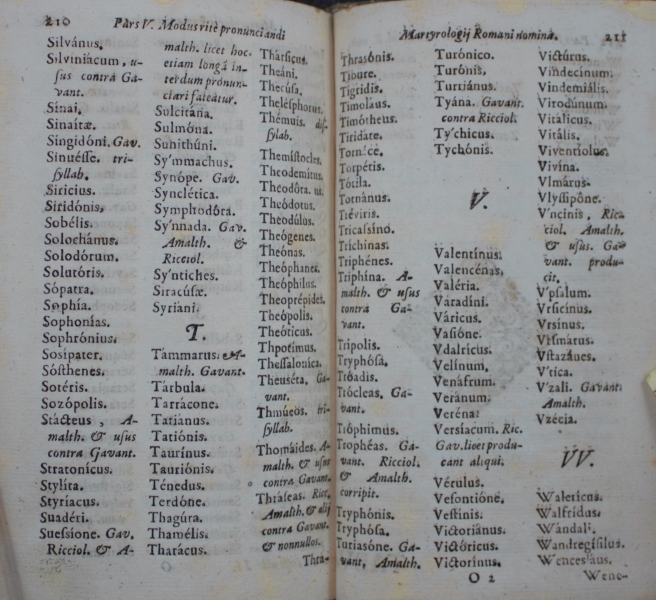 210 Pars V. Modus ritè pronunciandi
Silvánus.
Silviniácum, u-
sus contra Ga-
vant.
Sínai.
Sinaítæ.
Singidóni. Gav.
Sinuésse. tri-
syllab.
Siricius.
Siridónis.
Sobélis.
Solochánus.
Solodórum.
Solutóris.
Sópatra.
Sophía.
Sophonías.
Sophrónius.
Sosípater.
Sósthenes.
Sotéris.
Sozópolis.
Stácteus, A-
malth. & usus
contra Gavant.
Stratonícus.
Stylíta.
Styríacus.
Suadéri.
Suessióne. Gav.
Ricciol. & A-
malth. licet hoc
etiam longá in-
terdum pronun-
ciari fateatur.
Sulcitána.
Sulmóna.
Sunithúni.
Sy'mmachus.
Synópe. Gav.
Synclética.
Symphodóra.
Sy'nnada. Gav.
Amalth. &
Ricciol.
Sy'ntiches.
Siracúsæ.
Syriani.
T.
Támmarus. A-
malth. Gavant.
Tárbula.
Tarrácone.
Tatianus.
Tatiónis.
Taurínus.
Tauriónis.
Ténedus.
Terdóne.
Thagúra.
Thamélis.
Tharácus.
Thársicus.
Theáni.
Thecúsa.
Thelésphorus.
Thémuis. dis-
syllab.
Themístocles.
Theodemírus.
Theodóta.
Theódotus.
Theodúlus.
Theógenes.
Theónas.
Theóphanes.
Theóphilus.
Theoprépides.
Theópolis.
Theóticus.
Thpotímus.
Thessaloníca.
Theuséta, Ga-
vant.
Thmúeos. tri-
syllab.
Thomáides. A-
malth. & usus
contra Gavant.
Thráseas. Ricc.
Amalth. & alij
contra Gavant.
& nonnullos.
Thra-
Martyrologij Romani nomina. 211
Thrasónis.
Tíbure.
Tígridis.
Timoláus.
Timótheus.
Tiridáte.
Torníce.
Torpétis.
Tótila.
Tornánus.
Tréviris.
Tricassíno.
Tríchinas.
Triphénes.
Triphína. A-
malth. & usus
contra Ga-
vant.
Trípolis.
Tryphósa.
Tróadis.
Trócleas, Ga-
vant.
Tróphimus.
Trophéas. Ga-
vant. Ricciol.
& Amalth.
corripit.
Tryphónis.
Tryphósa.
Turiasóne. Ga-
vant, Amalth.
Turónico.
Turónis.
Turriánus.
Tyána. Gavant.
contra Ricciol.
Ty'chicus.
Tychónis.
V.
Valentínus.
Valencénas.
Valéria.
Váradíni.
Váricus.
Vasióne.
Vdalricus.
Velínum.
Venáfrum.
Veránum.
Veréna.
Versiacum. Ric.
Gav. licet produ-
cant aliqui.
Vérulus.
Vesontióne.
Vestínis.
Victoriánus.
Victóricus.
Victorínus.
O 2
Victúrus.
Vindecínum.
Vindemiális.
Virodúnum.
Vitálicus.
Vitális.
Viventíolus.
Vivína.
Vlmárus.
Vlyssipóne.
V'ncinis, Ric-
ciol. Amalth.
& usus. Ga-
vant. produ-
cit.
V'psalum.
Vrsicinus.
Vrsinus.
Vrsmárus.
Vstazádes.
V'tica.
V'zali. Gavant.
Amalth.
Vzécia.
VV.
Walericus.
Walfrídus.
Wandali.
Wandregísilus.
Wencesláus.
Wene-